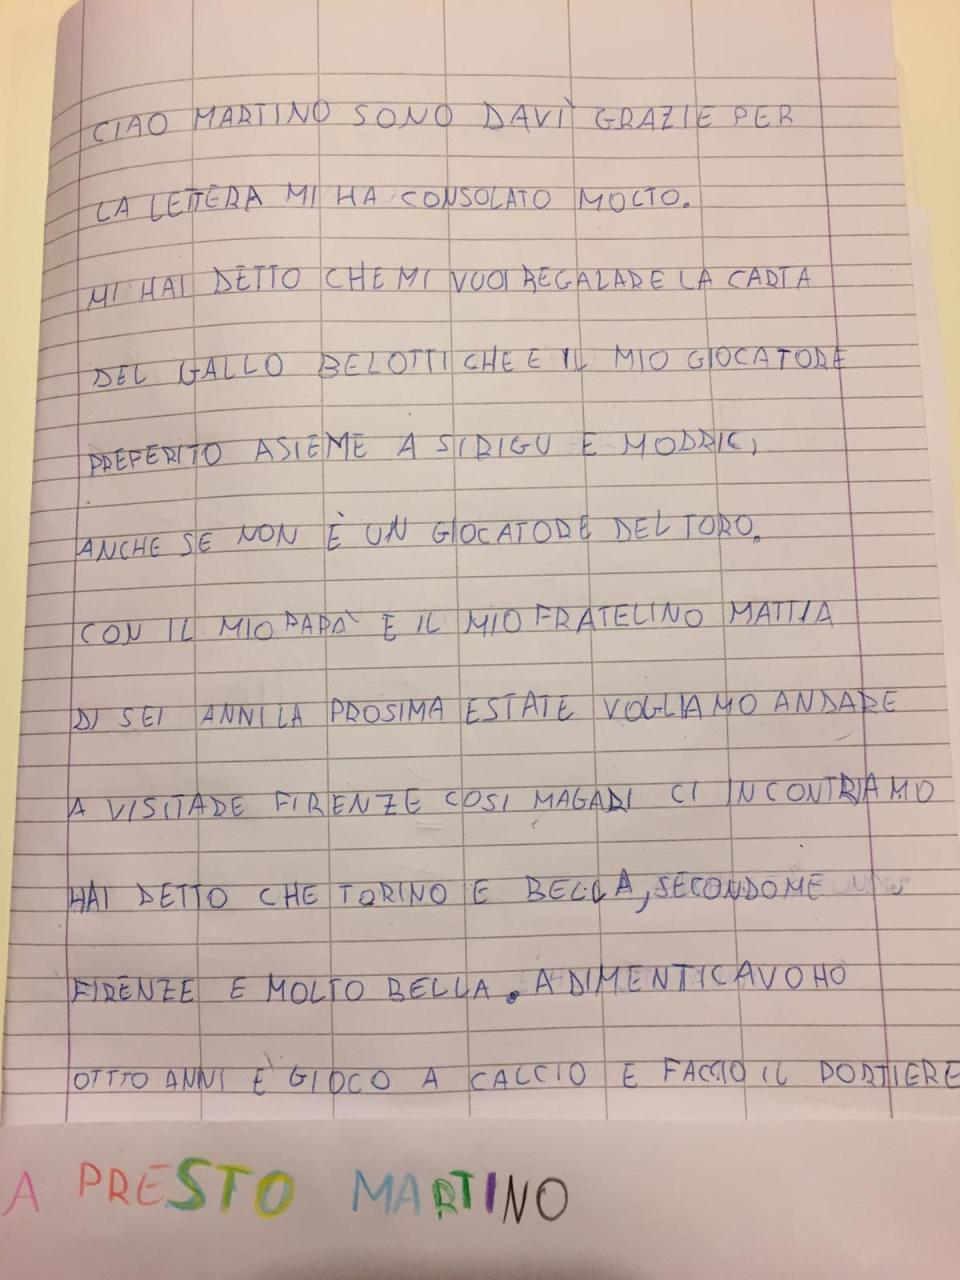 CIAO MARTINO SONO DAVÌ GRAZIE PER
LA LETTERA MI HA CONSOLATO MOLTO.
MI HAI DETTO CHE MI VUOI REGALARE LA CARTA
DEL GALLO BELOTTI CHE E IL MIO GIOCATORE
PREFERITO ASIEME A SIRIGU E MODRIC,
ANCHE SE NON È UN GIOCATORE DEL TORO.
CON IL MIO PAPÀ E IL MIO FRATELINO MATTIA
DI SEI ANNI LA PROSIMA ESTATE VOGLIAMO ANDARE
A VISITARE FIRENZE COSI MAGARI CI INCONTRIAMO
HAI DETTO CHE TORINO E BELLA, SECONDOME
FIRENZE E MOLTO BELLA. A DIMENTICAVO HO
OTTTO ANNI È GIOCO A CALCIO E FACCIO IL PORTIERE
A PRESTO MARTINO